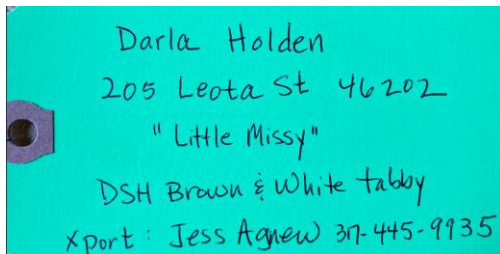 Darla Holden
205 Leota St 46202
"Little Missy"
DSH Brown & White tabby
Xport: Jess Agnew 317-445-9935